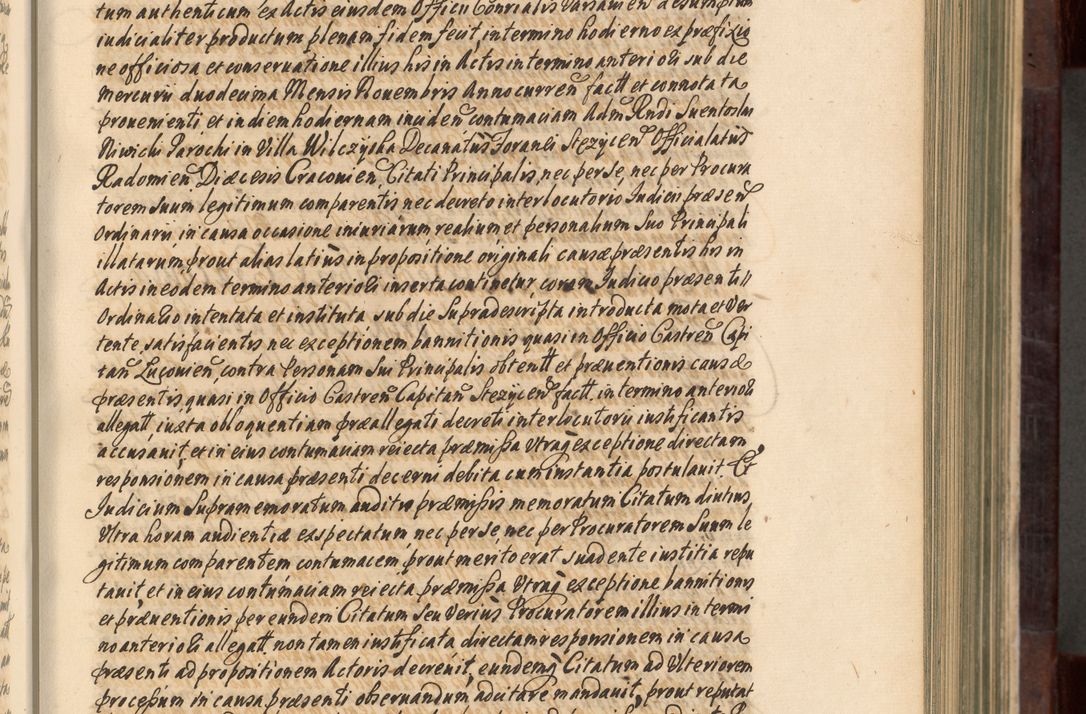 tum authenticum ex Actis eiusdem Officii Consrialis Varsavien desumptum
iudicialiter productum plenam fidem fecit, in termino hodierno ex præfixio
ne officiosa et conservatione illius hrs in Actis in termino anteriori sub die
Mercurii duodecima Mensis Novembris Anno curren fact et connotata
provenienti et in diem hodiernam inciden contumaciam Adm Rndi Suentoslai
Niwicki Parochi in Villa Wilczyska Decanatus Foranei Stezycen Officialatus
Radomien Diæcesis Cracovien Citati Principalis, nec per se, nec per Procura
torem suum legitimum comparentis nec decreto interlocutorio Iudicis præsen
Ordinarii, in causa occasione iniuriarum realium et personalium Suo Principali
illatarum, prout alias latius in propositione originali causæ præsentis hrs in
Actis in eodem termino anteriori inserta continetur, coram Iudicio præsenti
Ordinario intentata et instituta sub die Supradescripta introducta mota et ver
tente, satisfacientis nec exceptionem bannitionis quasi in Officio Castren Capi
tan Lucovien, contra Personam Sui Principalis obtent et præventionis causæ
præsentis, quasi in Officio Castren Capitan Stezycen fact, in termino anteriori
allegatt, iuxta obloquentiam præallegati decreti interlocutorii iustificantis
accusavit, et in eius contumaciam reiecta præmissa Utraq exceptione directam
responsionem in causa præsenti decerni debita cum instantia postulavit. Et
Iudicium Supramemoratum auditis præmissis memoratum Citatum diutius
Ultra horam audientiæ exspectatum nec per se, nec per Procuratorem Suum le
gitimum comparentem contumacem prout merito erat suadente iustitia repu
tavit, et in eius contumaciam reiecta præmissa Utraq exceptione bannitionis
et præventionis per eundem Citatum seu verius Procuratorem illius in termi
no anteriori allegatt, non tamen iustificata directam responsionem in causa
præsenti ad propositionem Actoris decrevit, eundemq Citatum ad Ulteriorem
processum in causa præsenti observandum adcitare mandavit, prout reputat